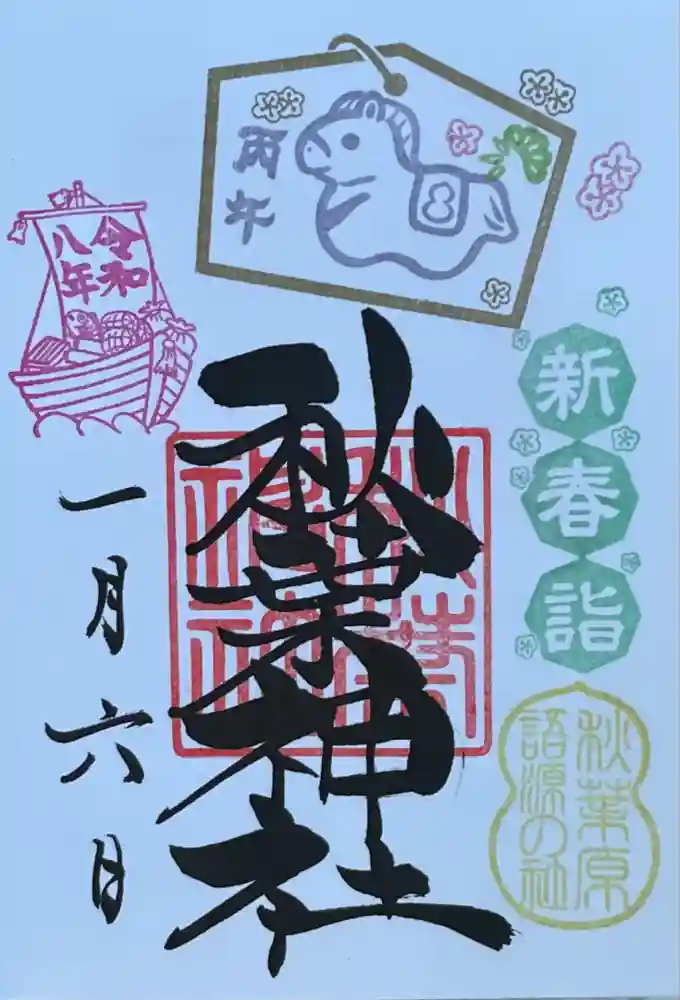 丙午
令和
八年
新春詣
秋葉神社
秋葉原
語源の社
一月六日